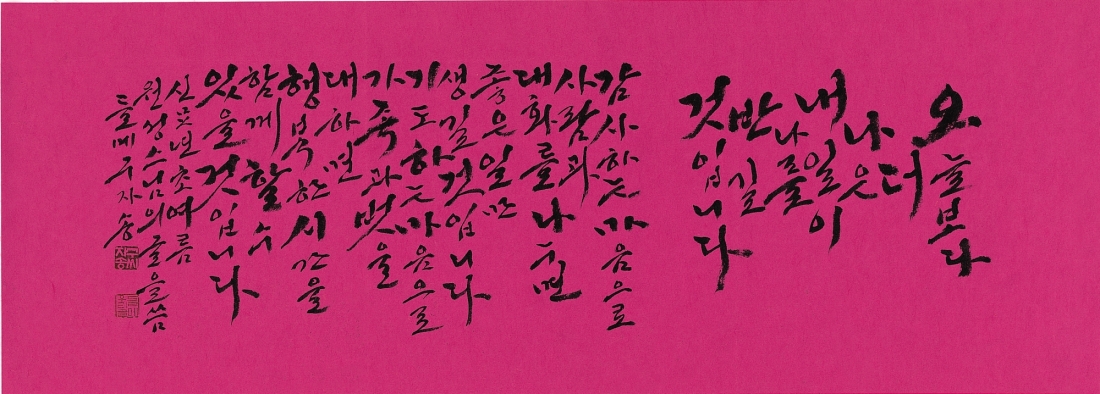 오늘보다
더
나은
내일이
나를
반길
것입니다
감사하는 마음으로
사람과
대화를 나누면
좋은 일만
생길 것입니다
기도하는 마음으로
가족과 벗을
대하면
행복한 시간을
함께 할 수
있을 것입니다
신丑년 초여름
원성스님의 글을 씀
들메 구자송